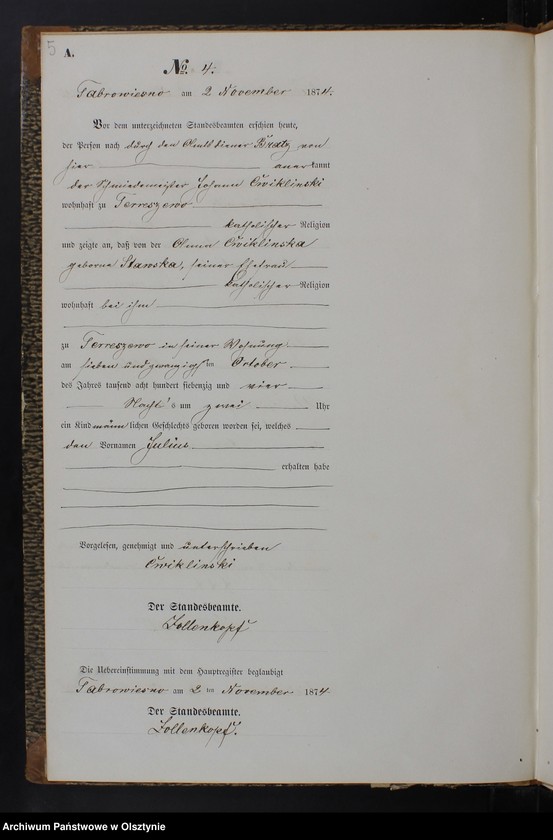 5
A.
No. 4.
Tabrowiesno am 2 November 1874.
Vor dem unterzeichneten Standesbeamten erschien heute,
der Person nach durch den Amtsdiener von
hier anerkannt
der Schmiedemeister Johann Ćwiklinski
wohnhaft zu Terreszewo
katholischer Religion
und zeigte an, daß von der Anna Ćwiklinska
geborne Stawska, seiner Ehefrau
katholischer Religion
wohnhaft bei ihm
zu Terreszewo in seiner Wohnung
am sieben und zwanzigsten October
des Jahres tausend acht hundert siebenzig und vier
Nachts um zwei Uhr
ein Kind männlichen Geschlechts geboren worden sei, welches
den Vornamen Julius
erhalten habe
Vorgelesen, genehmigt und unterschrieben
Ćwiklinski
Der Standesbeamte.
Zollenkopf
Die Uebereinstimmung mit dem Hauptregister beglaubigt
Tabrowiesno am 2ten November 1874
Der Standesbeamte.
Zollenkopf.
Archiwum Państwowe w Olsztynie